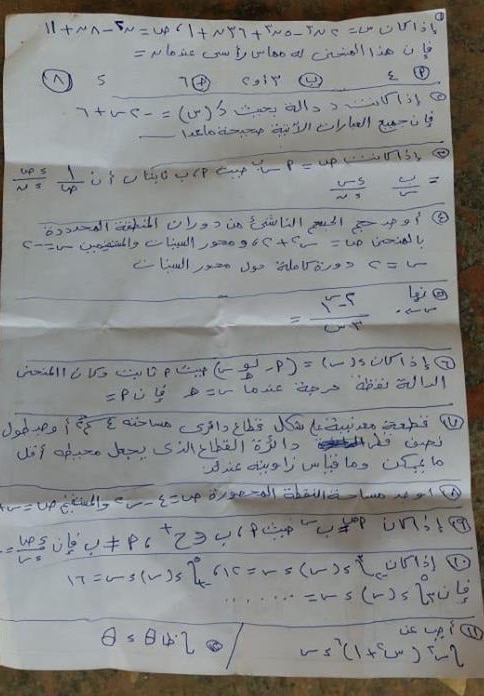 ① إذا كان س = ٢ن٣ - ٥ن٢ + ٣٦ن + ١ ، ص = ن٢ - ٨ن + ١١
فإن هذا المنحنى له مماس رأسى عندما ن =
٤ ب ٣ أو ٢ ٦ ٥ ٨
② إذا كانت د دالة بحيث د(س) = -٢س + ٦
فإن جميع العبارات الآتية صحيحة ماعدا
③ إذا كانت ص = P س^ب حيث P ، ب ثابتان أن ١/ص ءص/ءن
= ب/س ءس/ءن
④ أوجد حجم الجسم الناشئ من دوران المنطقة المحددة
بالمنحنى ص = س٢ + ٢ ، ومحور السينات والمستقيمين س = -٢
س = ٢ دورة كاملة حول محور السينات
⑤ نهــا س←٠ ٢ - ٣^س / ٣س =
⑥ إذا كان د(س) = (P - لو س) حيث P ثابت وكان المنحنى
الدالة نقطة حرجة عندما س = هـ فإن P =
⑦ قطعة معدنية على شكل قطاع دائرى مساحته ٤ سم٢ أوجد طول
نصف قطر دائرة القطاع الذى يجعل محيطه أقل
ما يمكن وما قياس زاويته عندئذ
⑧ أوجد مساحة النقطة المحصورة ص = ٤ - س٢ والمستقيم ص = س +
⑨ إذا كان P^ص = ب^س حيث P ، ب ∈ ح+ ، P ≠ ب فإن ءص/ءس =
⑩ إذا كان ∫ د(س) ءس = ١٢ ، ∫ د(س) ءس = ١٦
فإن ∫ د(س) ءس = .......
⑪ أجب عن
∫ س٣ (س٢ + ١)٢ ءس / ∫ ظا θ ء θ